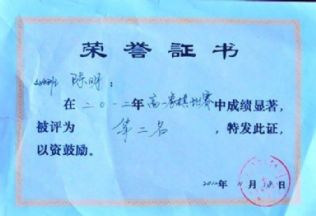 荣誉証书
陈晔：
在二〇一二年高一象棋比赛中成绩显著，
被评为 第二名 ，特发此证，
以资鼓励。
年 月 日